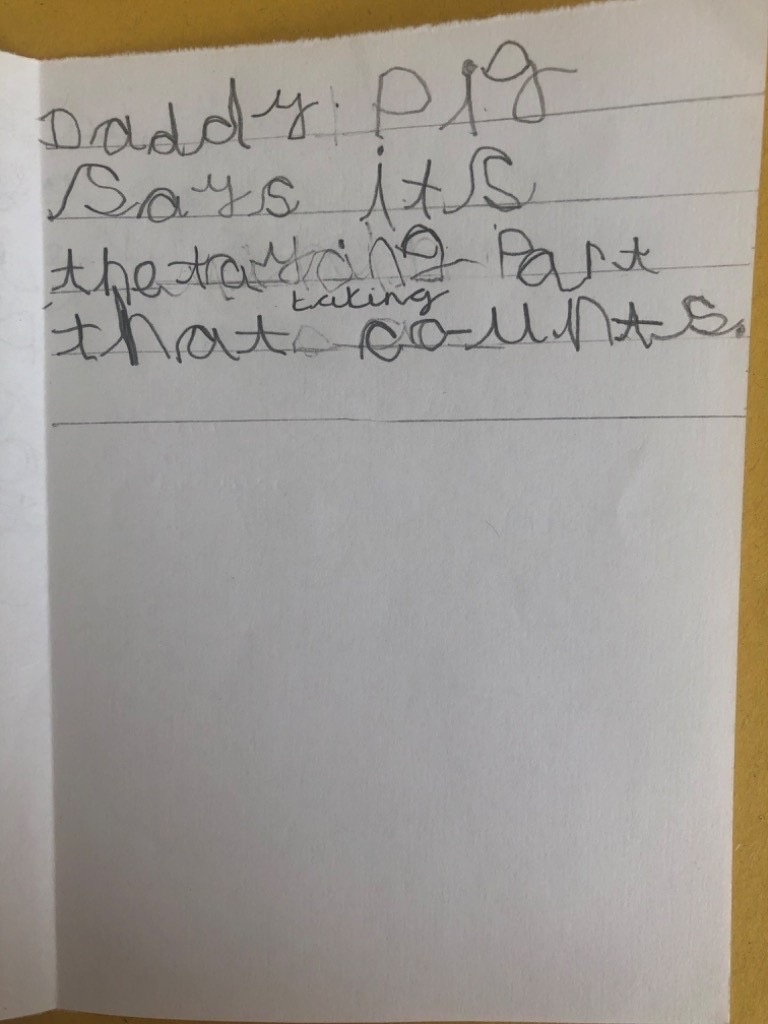 Daddy Pig
Says its
the taying Part
taking
that counts.